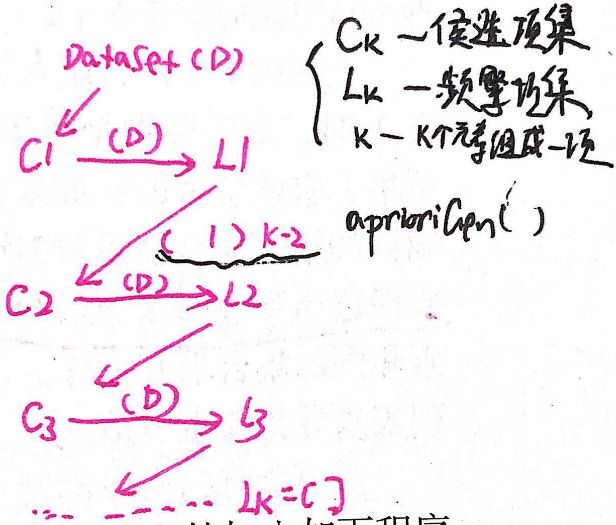 Dataset (D)
CK — 候选项集
LK — 频繁项集
K — K个元素组成一项
C1 (D) L1
aprioriGen( )
( 1 ) K-2
C2 (D) L2
C3 (D) L3
... LK=[]